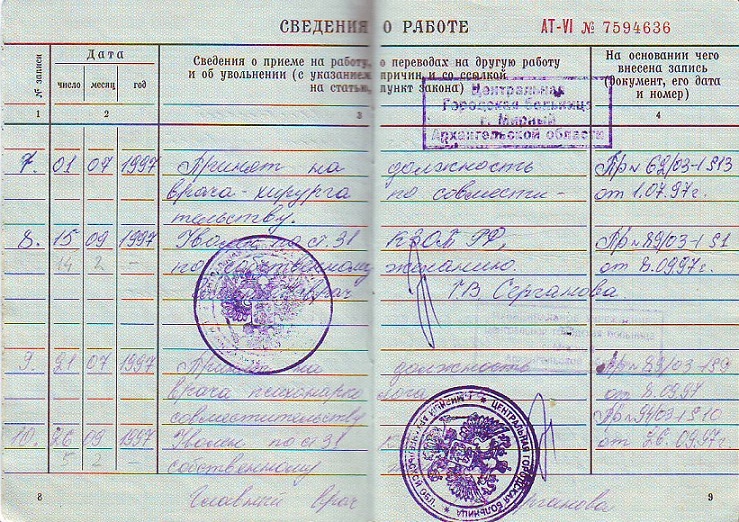 СВЕДЕНИЯ О РАБОТЕ
АТ-VI № 7594636
№ записи
Дата
число месяц год
Сведения о приеме на работу, о переводах на другую работу
и об увольнении (с указанием причин и со ссылкой
на статью, пункт закона)
На основании чего
внесена запись
(документ, его дата
и номер)
1 2 3 4
Центральная
Городская больница
г. Мирный
Архангельской области
7. 01 07 1997 Принят на должность Пр№ 62/03-1 §13
врача-хирурга по совмести- от 1.07.97г.
тельству.
8. 15 09 1997 Уволен по ст. 31 КЗОТ РФ, Пр№ 89/03-1 §1
14 2 - по собственному желанию. от 8.09.97г.
врач Г.В. Серганова.
9. 21 07 1997 Принят на должность Пр№ 89/03-1 §9
врача психонарко лога от 8.09.97
совместительству Пр№ 94/03-1 §10
10. 26 09 1997 Уволен по ст. 31 от 26.09.97г.
5 2 - собственному
Главный врач Серганова
ЦЕНТРАЛЬНАЯ ГОРОДСКАЯ БОЛЬНИЦА
8
9